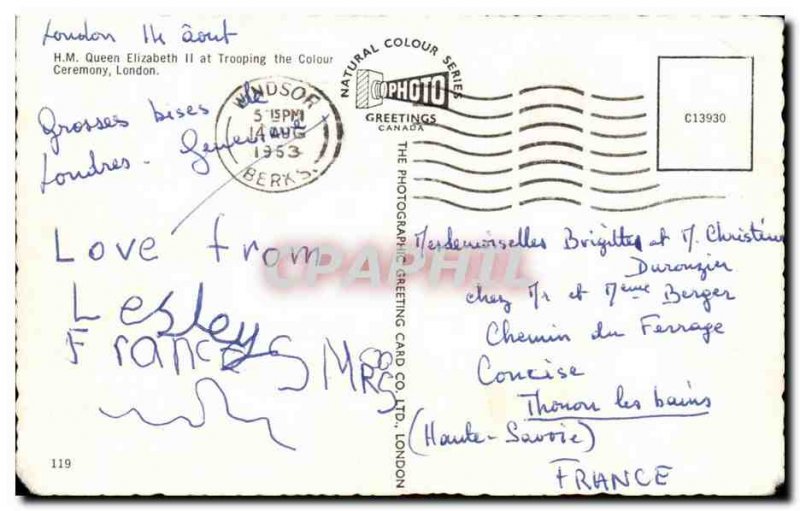 London 14 âout
H.M. Queen Elizabeth II at Trooping the Colour
Ceremony, London.
Grosses bises de
Londres - Geneviève
WINDSOR
5 15PM
14 AUG
1963
BERKS.
Love from
Lesley
Frances
MRS
119
NATURAL COLOUR SERIES
PHOTO
GREETINGS
CANADA
C13930
THE PHOTOGRAPHIC GREETING CARD CO. LTD., LONDON
CPAPHIL
Mesdemoiselles Brigitte et M. Christine
Durouzier
chez Mr et Mme Berger
Chemin du Ferrage
Concise
Thonon les bains
(Haute-Savoie)
FRANCE